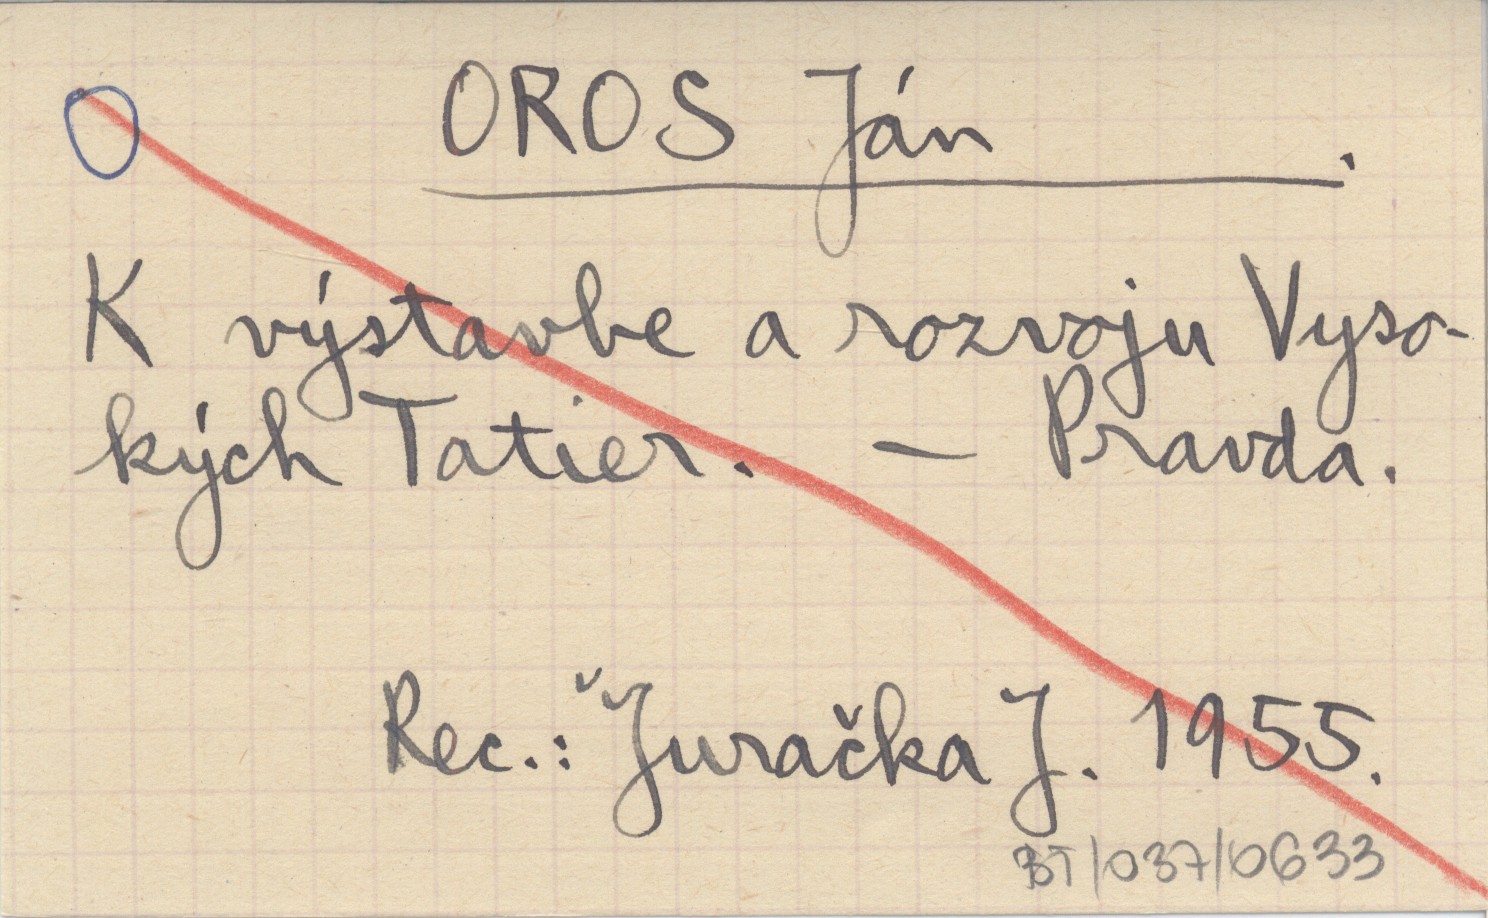 O
OROS Ján .
K výstavbe a rozvoju Vyso-
kých Tatier. — Pravda.
Rec.: Juračka J. 1955.
BT/037/0633